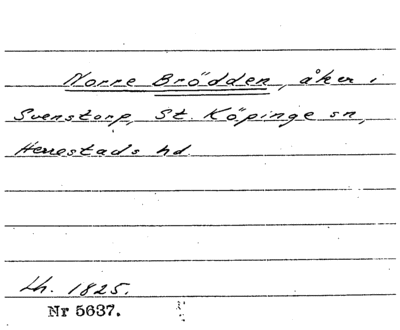 Norre Brödden, åker i
Svenstorp, St. Köpinge sn,
Herrestads hd.
Lh. 1825.
Nr 5637.